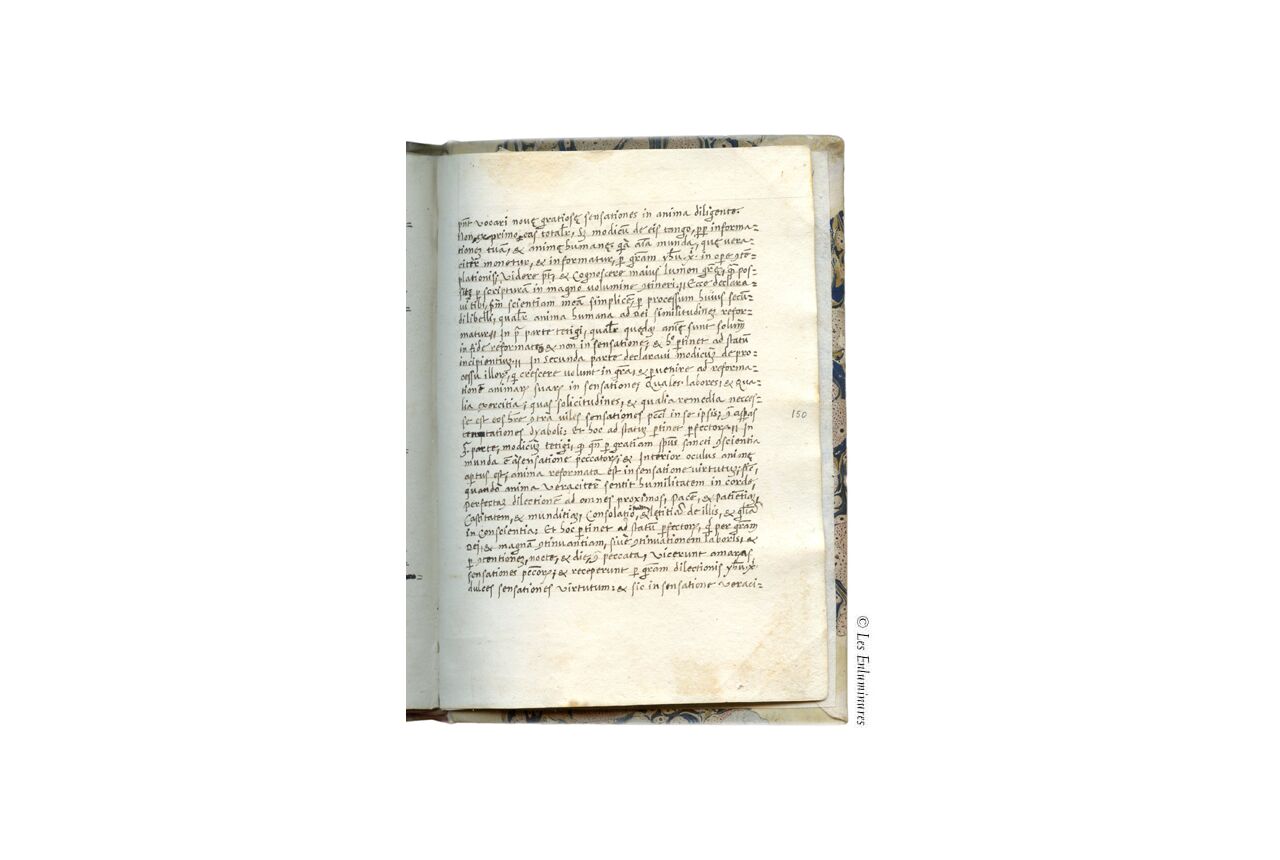 pñt vocari nouę gratiosę sensationes in anima diligente.
Non exprimo eas totalr̃, sʒ modicũ de eis tango, ꝓpt̃ informa-
tionez tuam, & animę humanę: quia aĩa munda, quę vera-
citer̃ monetur, & informatur, ꝑ gr̃am yhũ.x̃. in oꝑe ɔ̃tẽ-
plationis: Videre pt̃, & Cognoscere maius lumen gr̃ę,
ꝑ scripturam in magno volumine Ecce declara-
vi tibi, ẜm scientiam meam simplicẽ, ꝑ processum huius secũ-
di libelli, qualr̃ anima humana ad Dei similitudinez refor-
matur. In p̃ parte tetigi, qualr̃ quędaʒ anię sunt solum̃
in fide reformatę & non in sensatione; & hoc ꝑtinet ad statũ
incipientiuʒ. In Secunda parte declaravi modicuʒ de pro-
cessu illorʒ, qui crescere volunt in gr̃a, & ꝑvenire ad reforma-
tionẽ animarʒ suarʒ in sensatione. Quales labores, & qua-
lia exercitia, quas solicitudines, & qualia remedia necces-
se est eos hr̃e ɔtra viles sensationes pcc̃i in se ipsis, & asperas
temptationes dyaboli: Et hoc ad statuʒ ꝑtinet ꝑfectorʒ. In
parte, modicuʒ tetigi, qñ ꝑ gratiam sp̃us sancti ɔscientia
munda ẽ a sensatione peccatorʒ, & Interior oculus animę
aꝑtus est, anima reformata est in sensatione virtutuʒ,
quando anima veraciter̃ sentit humilitatem in corde,
Perfectaʒ dilectionẽ ad omnes proximos, pacẽ, & patiẽtiaʒ,
Castitatem, & munditiaʒ, Consolatio, & lętitiaʒ de illis, & gl̃iaʒ
in Conscientia: Et hoc ꝑtinet ad statũ ꝑfectorʒ, qui per gr̃am
Dei, & magnam ɔtinuantiam, siue ɔtinuationem laboris, &
ꝑ ɔtentionez, nocte, & die, ɔ̃ peccata, vicerunt amaras
sensationes pcc̃orʒ, & receperunt ꝑ gr̃am dilectionis yhũ.x̃.
dulces sensationes virtutum: & sic in sensatione veraci-
150
© Les Enluminures